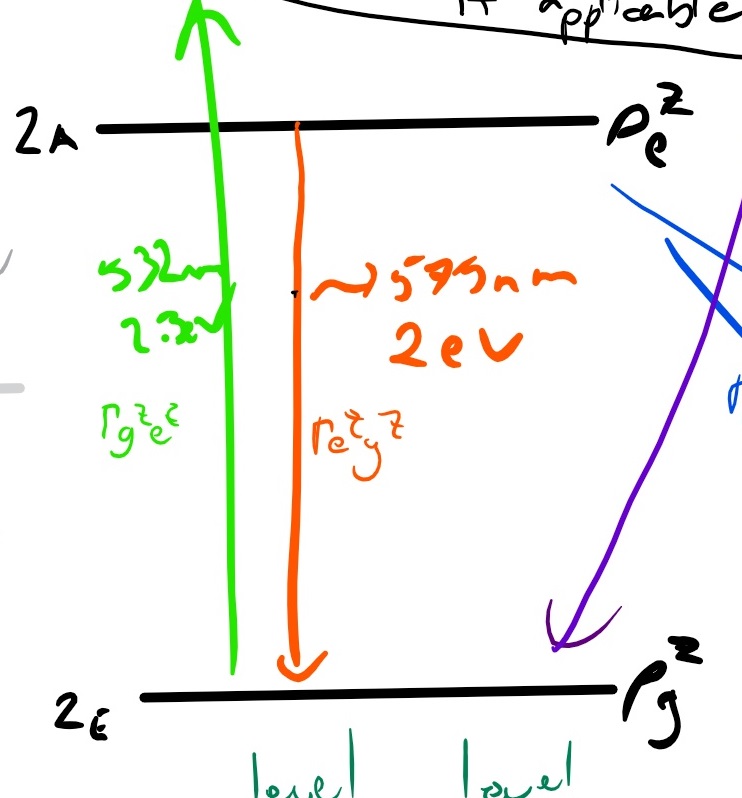 If applicable
2A
ρe^z
532nm
2.3eV
~575nm
2eV
Γg^z e^z
Γe^z g^z
2E
ρg^z
level level